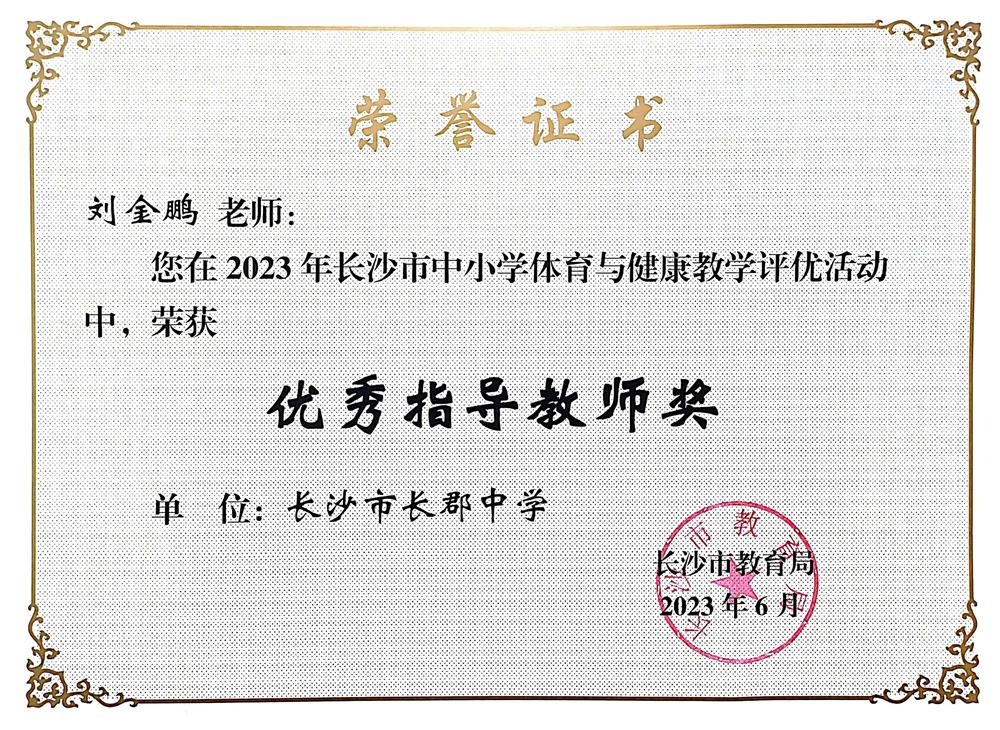 荣誉证书
刘金鹏 老师:
您在2023年长沙市中小学体育与健康教学评优活动
中,荣获
优秀指导教师奖
单 位:长沙市长郡中学
长沙市教育局
2023年6月
长沙市教育局